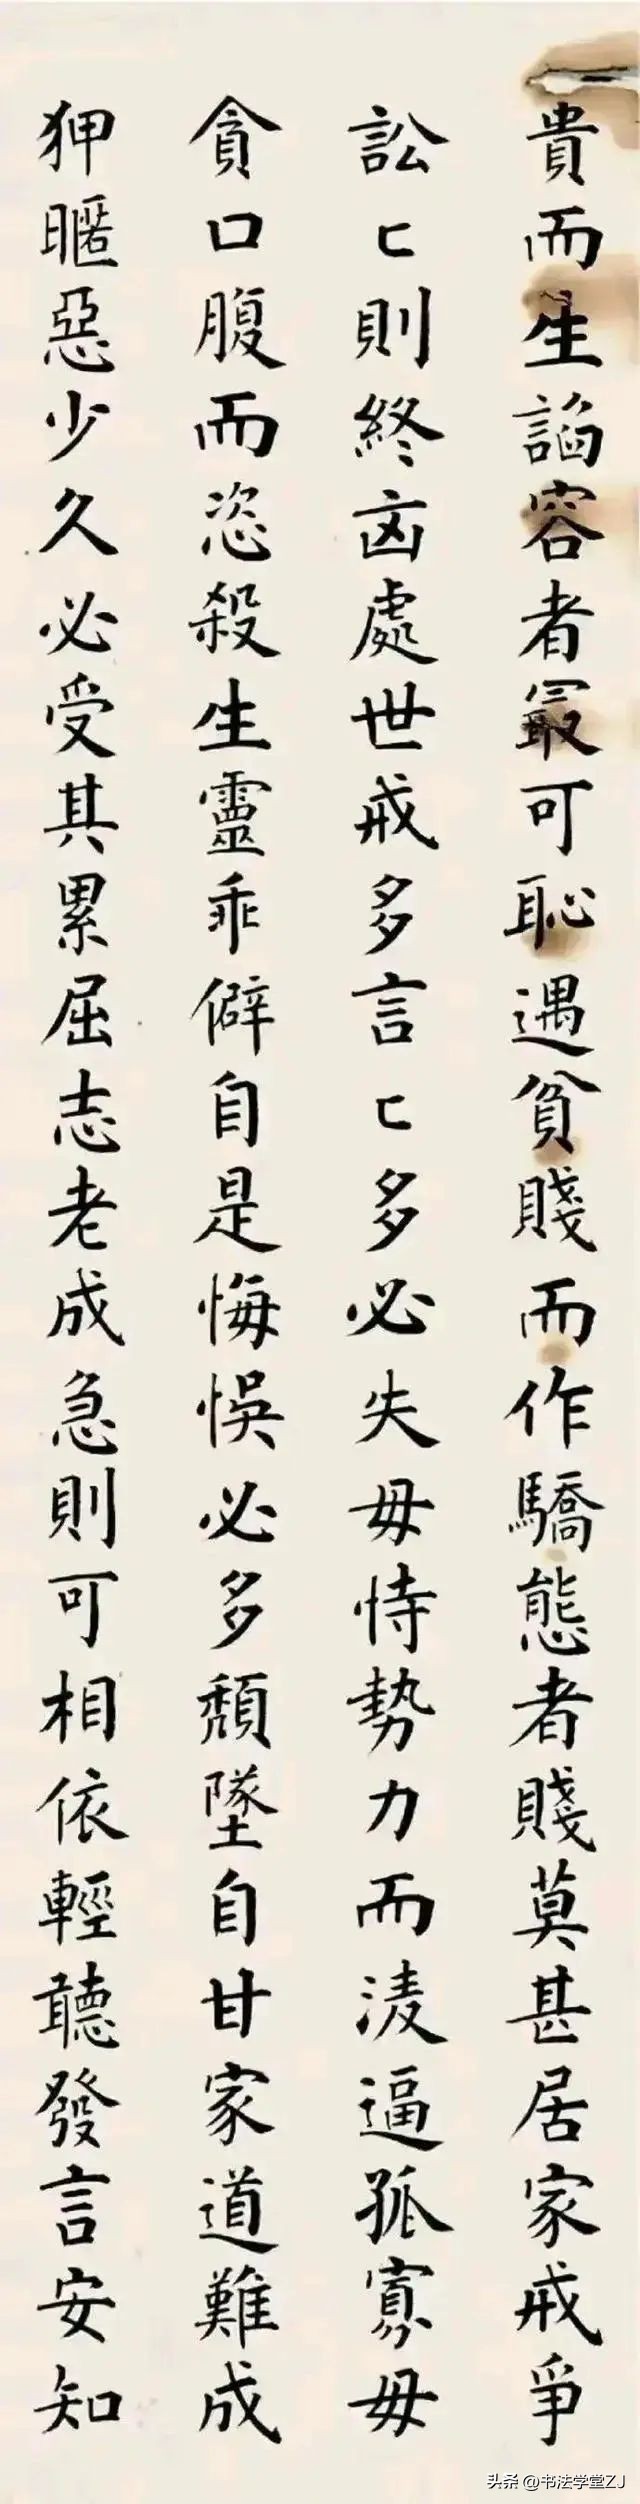 貴而生諂容者最可恥遇貧賤而作驕態者賤莫甚居家戒爭
訟匕則終凶處世戒多言匕多必失毋恃勢力而淩逼孤寡毋
貪口腹而恣殺生靈乖僻自是悔悞必多頹墜自甘家道難成
狎暱惡少久必受其累屈志老成急則可相依輕聽發言安知
头条 @书法学堂ZJ